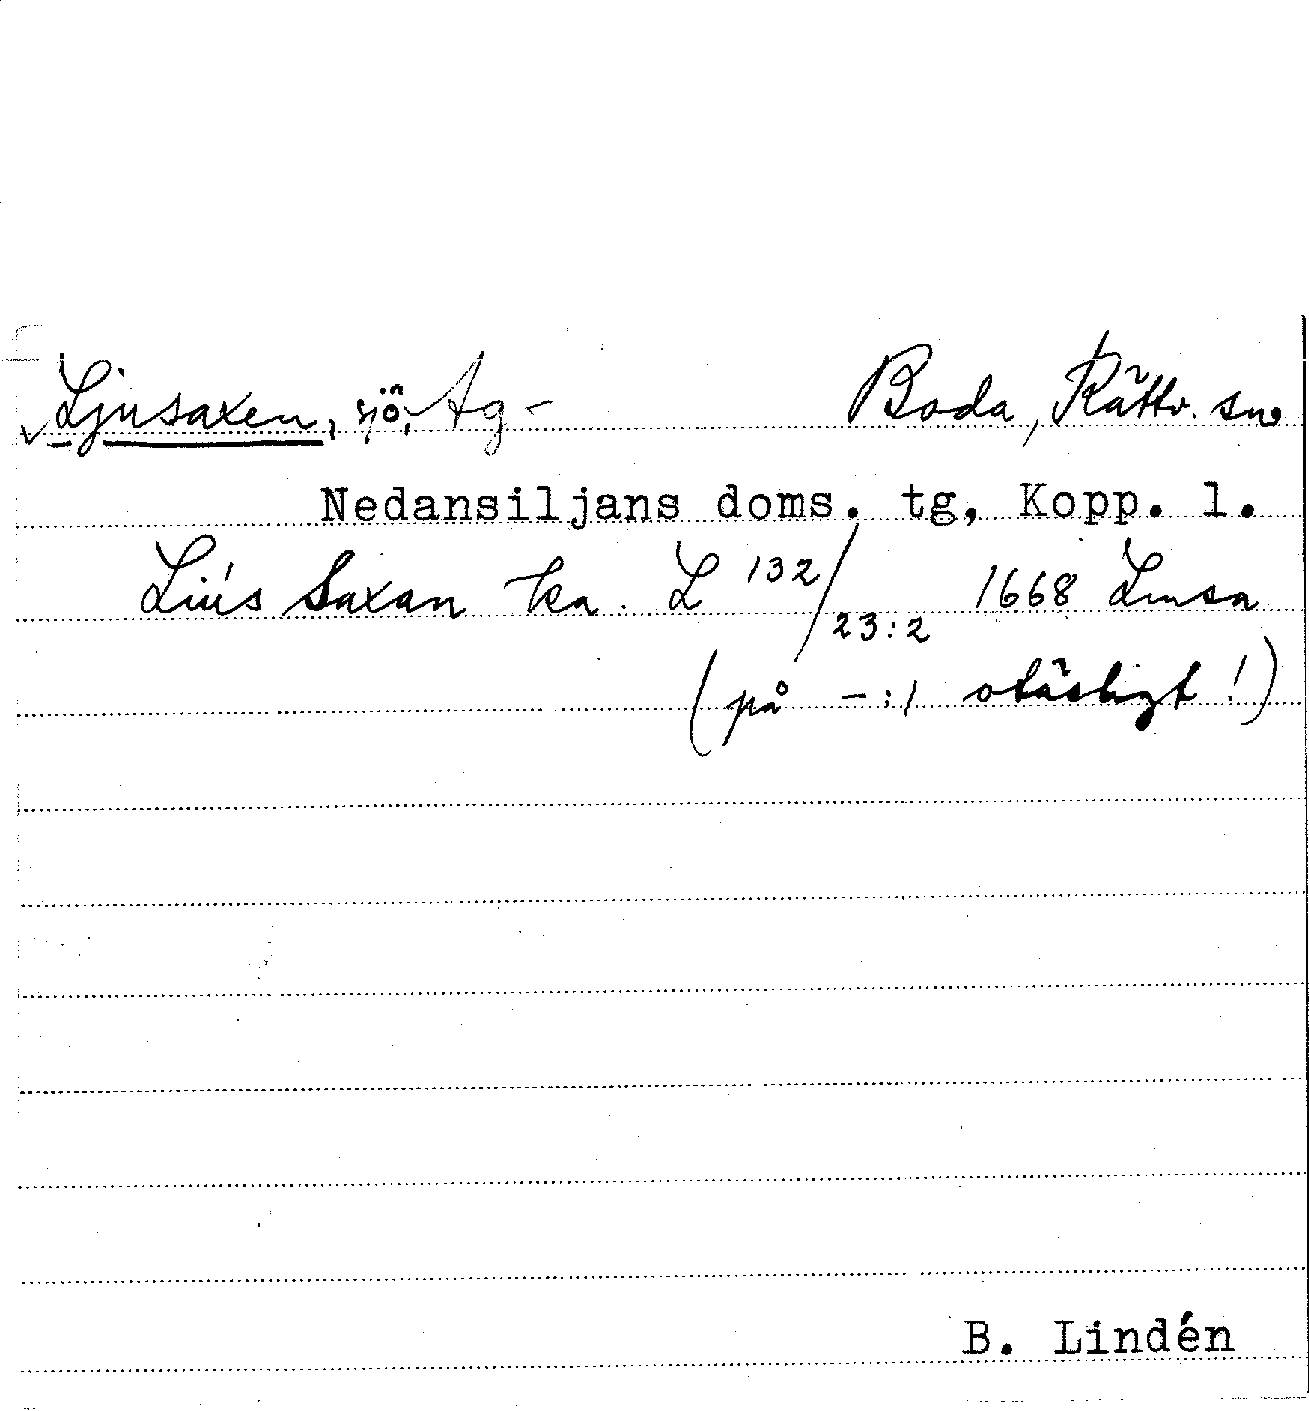 Ljusaxen, sjö, Åg- Boda, Rättv. sn,
Nedansiljans doms. tg, Kopp. l.
Liús Saxan ka. L 132/23:2 1668 Liusa
(på -:1 oläsligt!)
B. Lindén